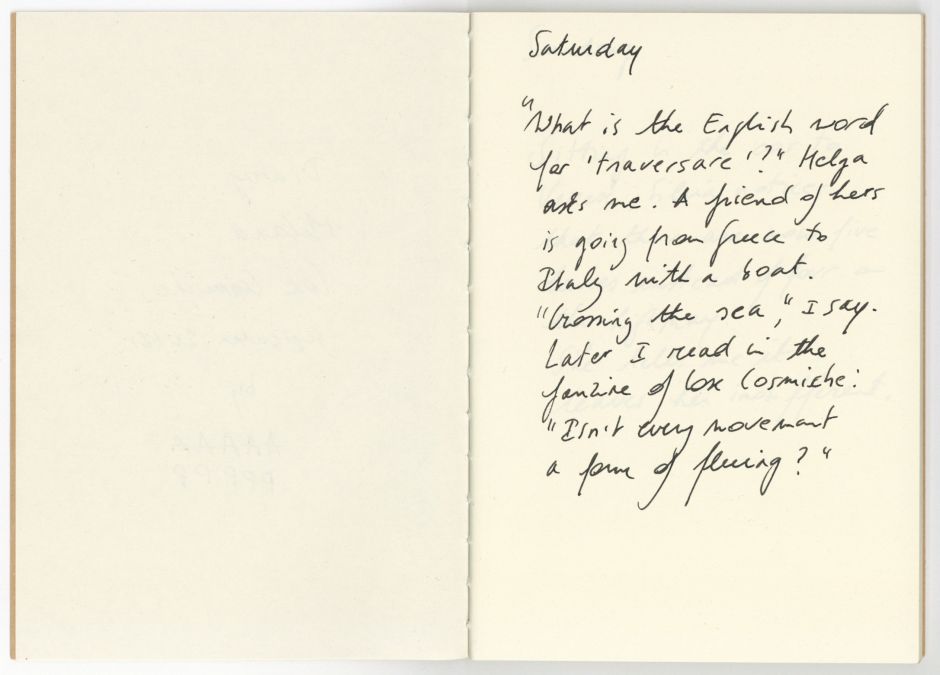 Saturday
"What is the English word
for 'traversare'?" Helga
asks me. A friend of hers
is going from Greece to
Italy with a boat.
"Crossing the sea," I say.
Later I read in the
fanzine of Cosmiche:
"Isn't every movement
a form of fleeing?"